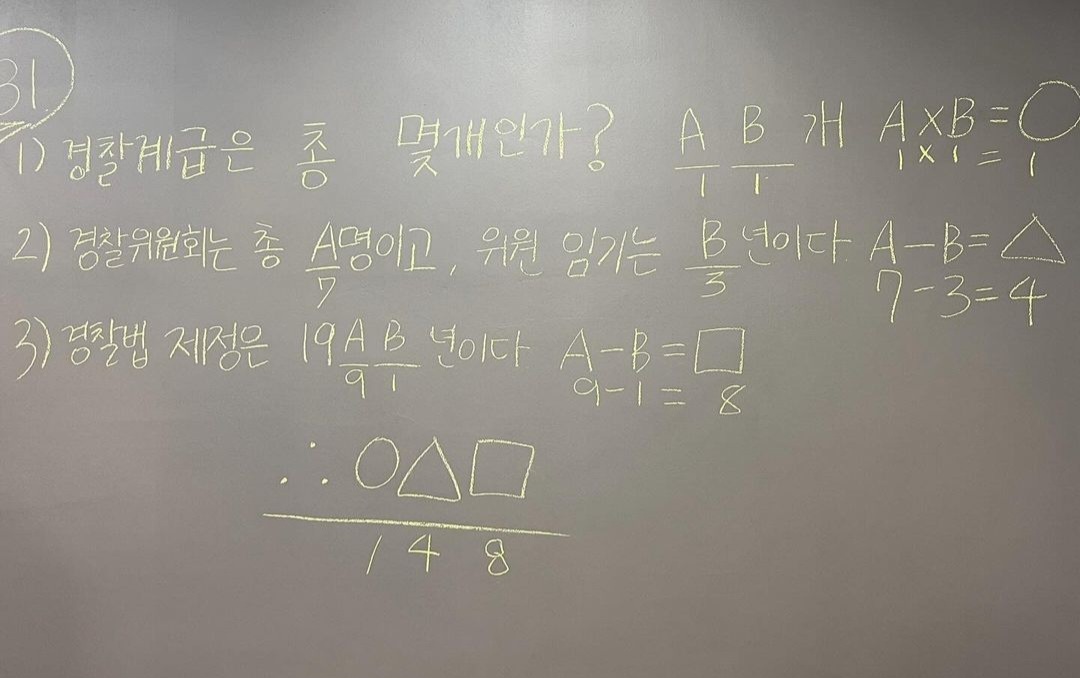 31
1) 경찰계급은 총 몇개인가? A B 개 A×B=○
1 1 1×1=1
2) 경찰위원회는 총 A명이고, 위원 임기는 B년이다. A-B=△
7 3 7-3=4
3) 경찰법 제정은 19AB년이다 A-B=□
9 1 9-1=8
∴ ○△□
1 4 8